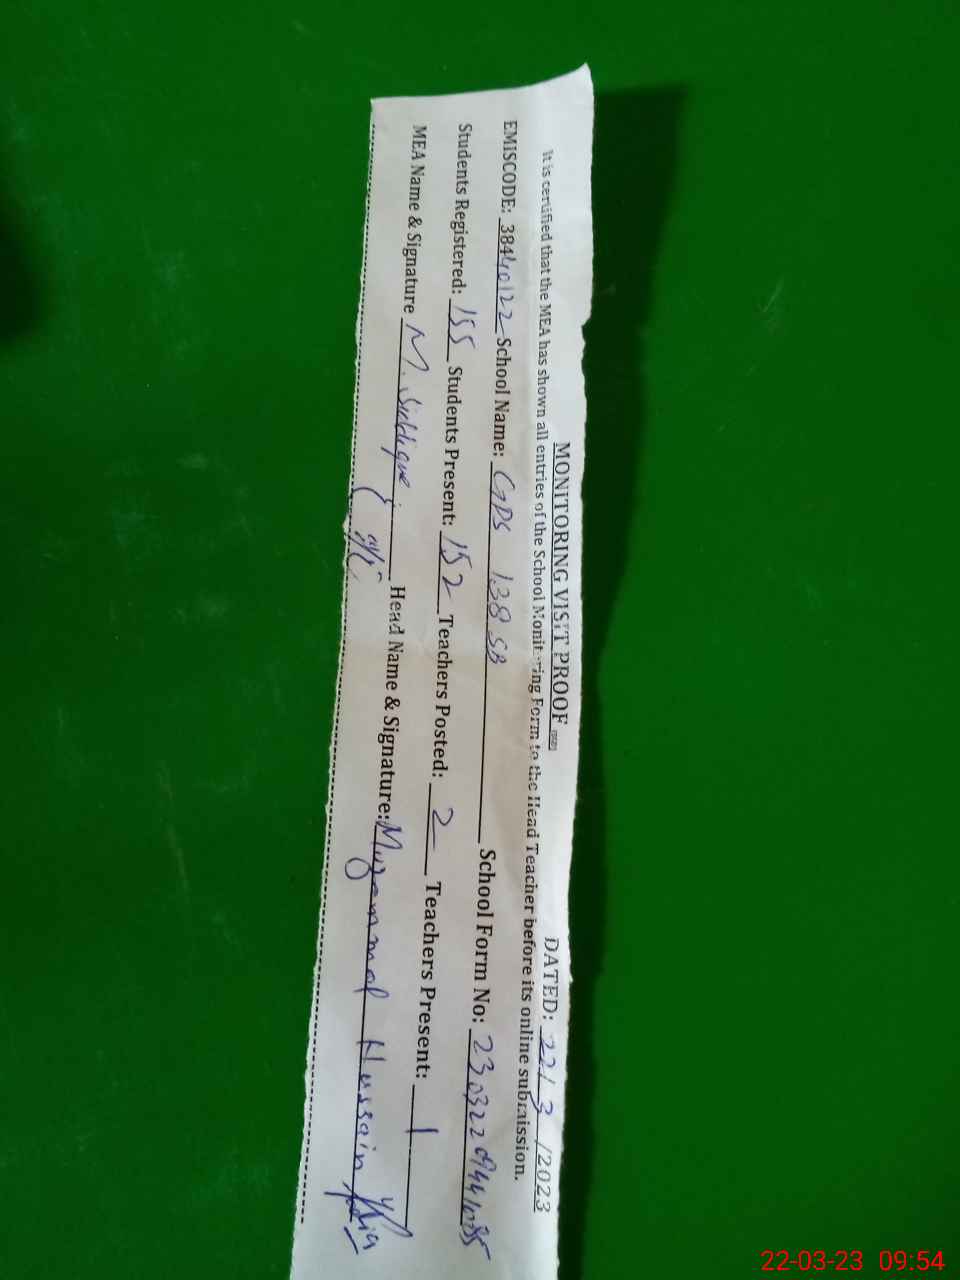 MONITORING VISIT PROOF DATED: 22/3/2023
It is certified that the MEA has shown all entries of the School Monitoring Form to the Head Teacher before its online submission.
EMISCODE: 38440122 School Name: GPS 138 SB School Form No:
Students Registered: 155 Students Present: 152 Teachers Posted: 2 Teachers Present: 1
MEA Name & Signature M. Siddique Head Name & Signature: Muzammal Hussain
22-03-23 09:54